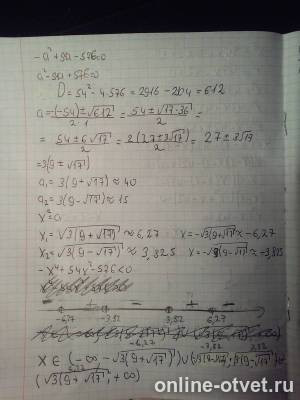 -a²+54a-576=0
a²-54a+576=0
D=54²-4·576=2916-204=612
a=(-(-54)±√612)/(2·1)=(54±√(17·36))/2=
=(54±6√17)/2=(2(27±3√17))/2=27±3√17
=3(9±√17)
a₁=3(9+√17)≈40
a₂=3(9-√17)≈15
x²=a
x₁=√(3(9+√17))≈6,27 x=-√(3(9+√17))≈-6,27
x₂=√(3(9-√17))≈3,825 x=-√(3(9-√17))≈-3,825
-x⁴+54x²-576<0
- + - + -
-6,27 -3,52 3,52 6,27
x∈(-∞,-√(3(9+√17)))∪
(√(3(9+√17));+∞)
online-otvet.ru